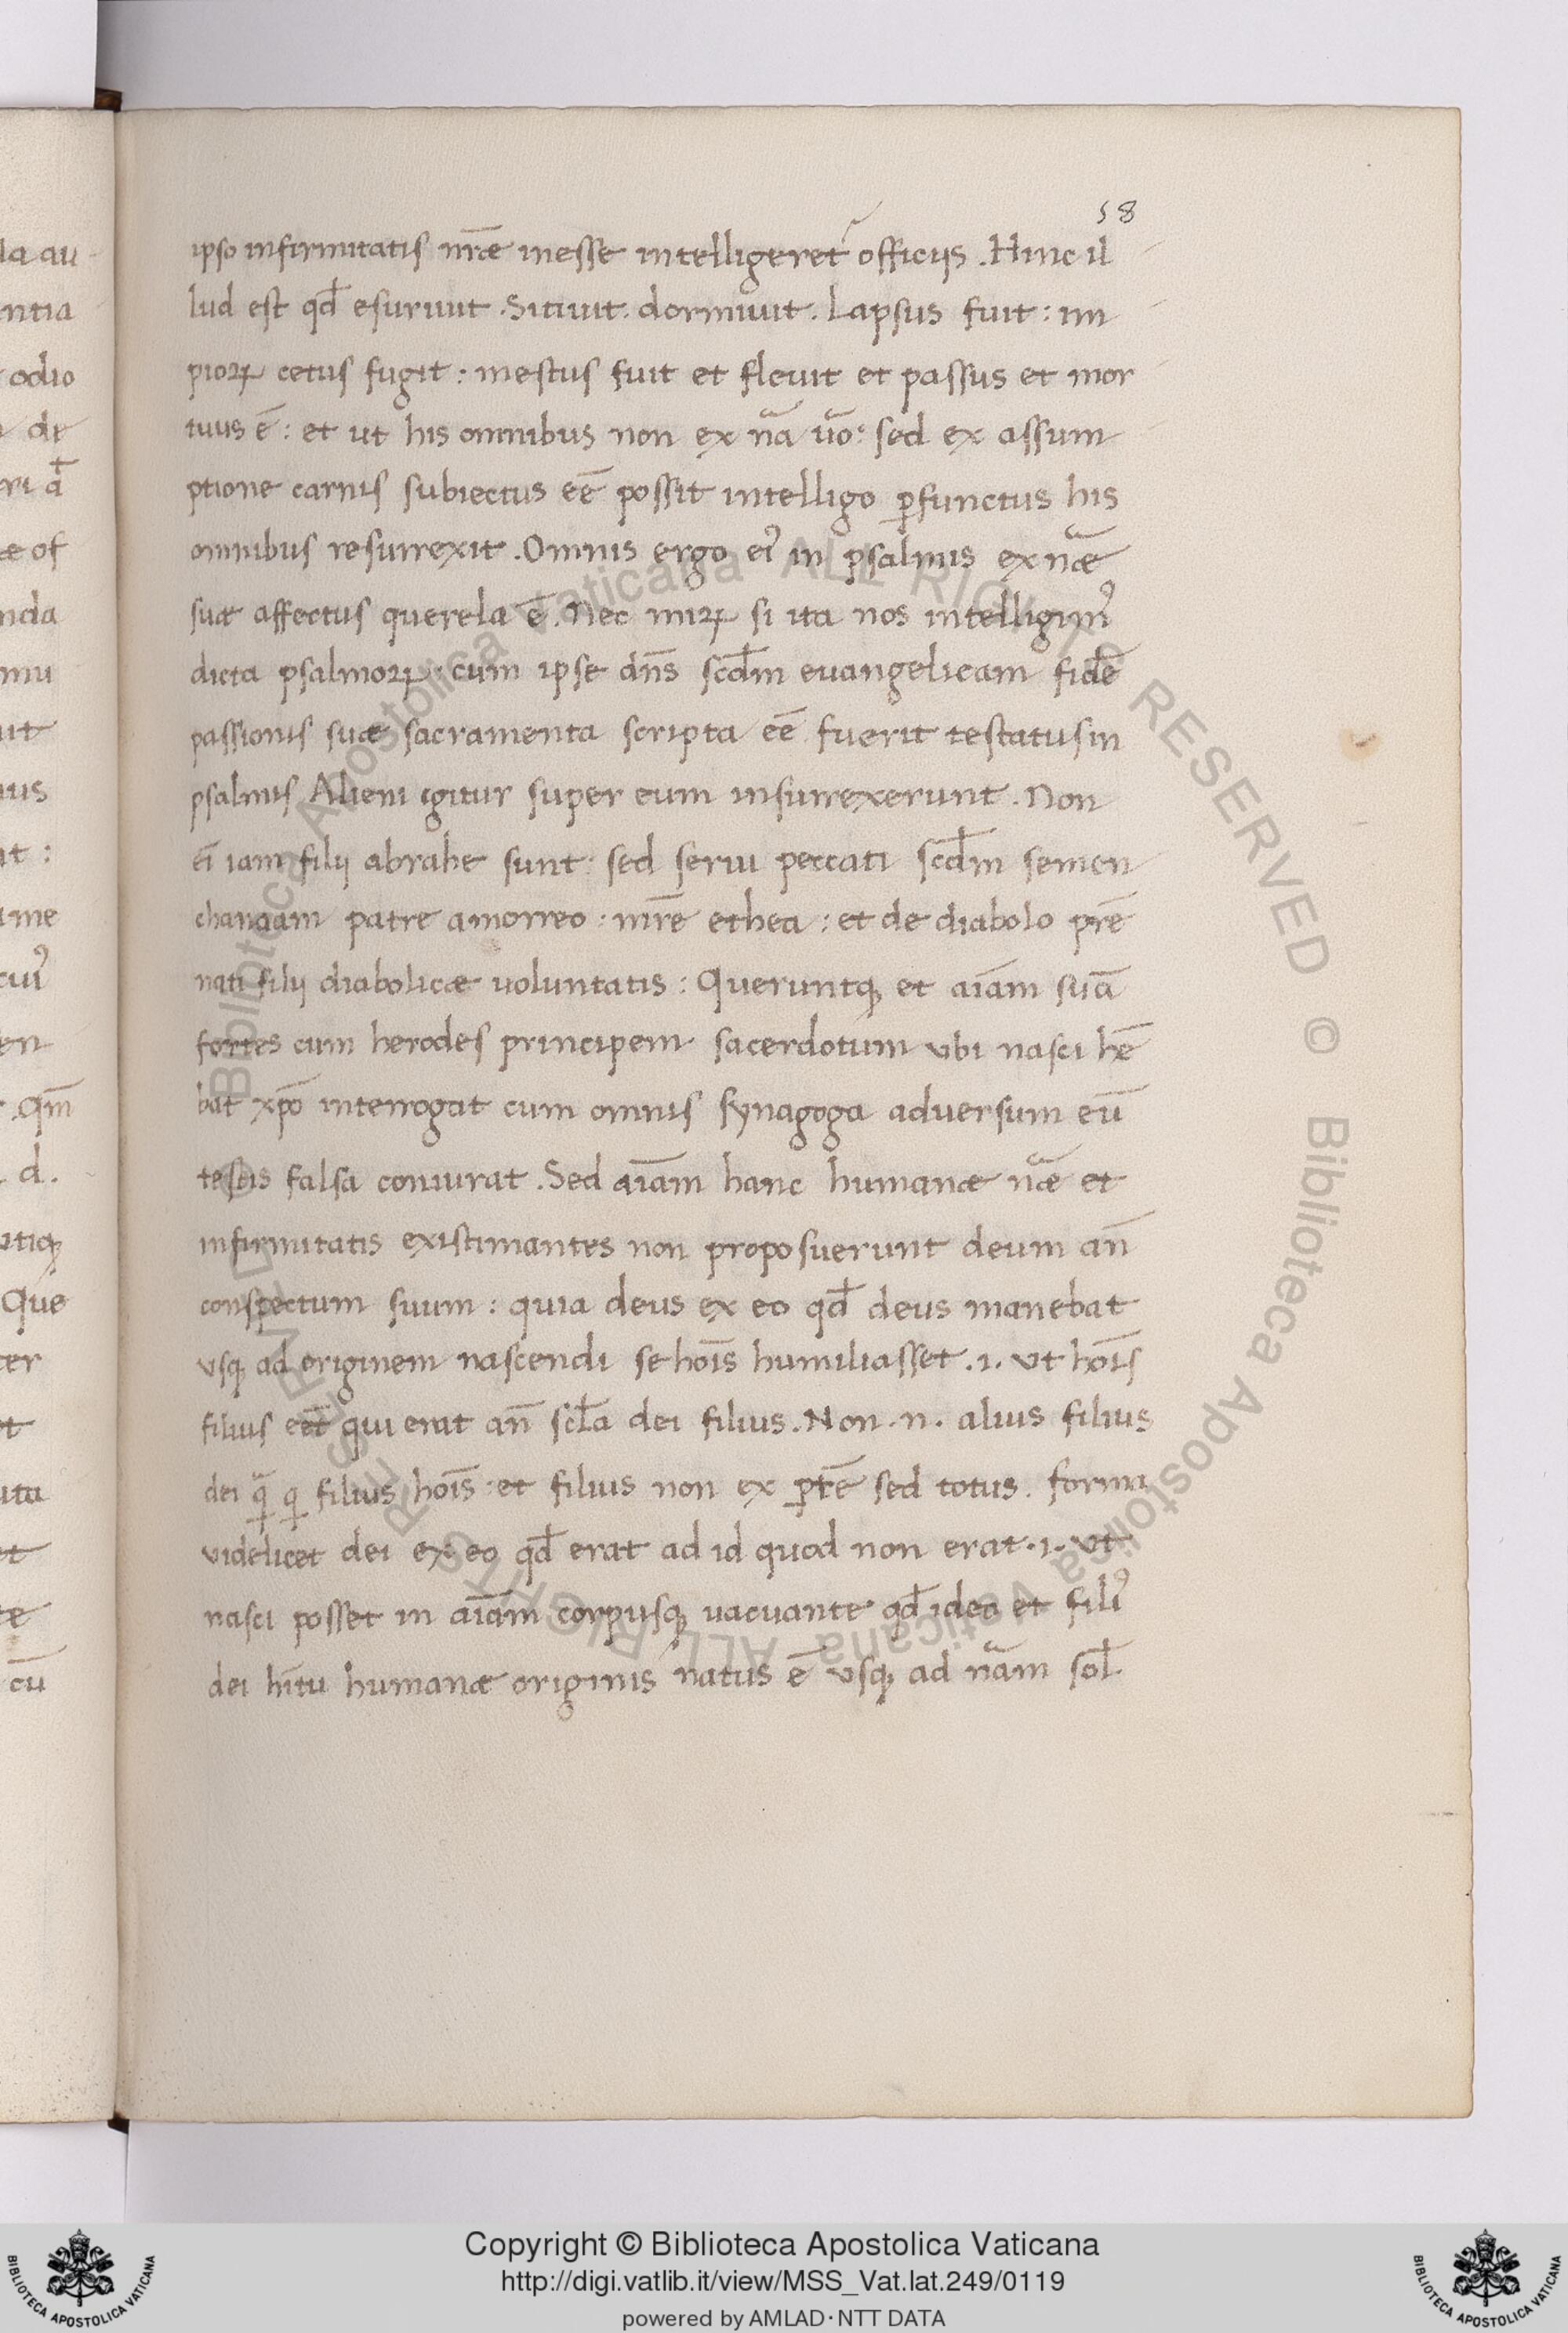 58
ipso infirmitatis nr̄æ inesse intelligeret᷑ officijs . Hinc il
lud est qd̄ esuriuit . Sitiuit . dormiuit . Lapsus fuit : im
pioꝝ cetus fugit : mestus fuit et fleuit et passus et mor
tuus ē : et ut his omnibus non ex na᷑ uō : sed ex assum
ptione carnis subiectus eē possit intelligo ꝑfunctus his
omnibus resurrexit . Omnis ergo eiꝰ in psalmis ex næ᷑
suæ affectus querela ē . Nec miꝝ si ita nos intelligimꝰ
dicta psalmoꝝ : cum ipse dn̄s scd̄m euangelicam fidē
passionis suæ sacramenta scripta eē fuerit testatus in
psalmis Alieni igitur super eum insurrexerunt . Non
eī iam filij abrahe sunt : sed serui peccati scd̄m semen
chanaam patre amorreo : mr̄e ethea : et de diabolo pr̄e
nati filij diabolicæ voluntatis : Queruntqꝫ et aīam suā
fortes cum herodes principem sacerdotum vbi nasci hē
bat xpō interrogat cum omnis synagoga aduersum eū
testis falsa coniurat . Sed aīam hanc humanæ næ᷑ et
infirmitatis existimantes non proposuerunt deum an̄
conspectum suum : quia deus ex eo qd̄ deus manebat
vsqꝫ ad originem nascendi se hoīs humiliasset . i . vt hoīs
filius eēt qui erat an̄ scl̄a dei filius . Non . n . alius filius
dei q̄ꝫ q̣ filius hoīs : et filius non ex ꝑtē sed totus . forma
videlicet dei ex eo qd̄ erat ad id quod non erat . i . vt
nasci posset in aīam corpusqꝫ vacuante qd̄ ideo et filiꝰ
dei hītu humanæ originis natus ē vsqꝫ ad na᷑m sol̄.
la au
ntia
odio
de
ri
æ of
nda
mu
ut
uus
nt :
me
cuiꝰ
en
. Qm̄
. d .
utiqꝫ
Que
ter
et
ita
et
te
cū
© Biblioteca Apostolica Vaticana ALL RIGHTS RESERVED © Biblioteca Apostolica Vaticana ALL RIGHTS RESERVED
Copyright © Biblioteca Apostolica Vaticana
http://digi.vatlib.it/view/MSS_Vat.lat.249/0119
powered by AMLAD·NTT DATA
BIBLIOTECA APOSTOLICA VATICANA
BIBLIOTECA APOSTOLICA VATICANA